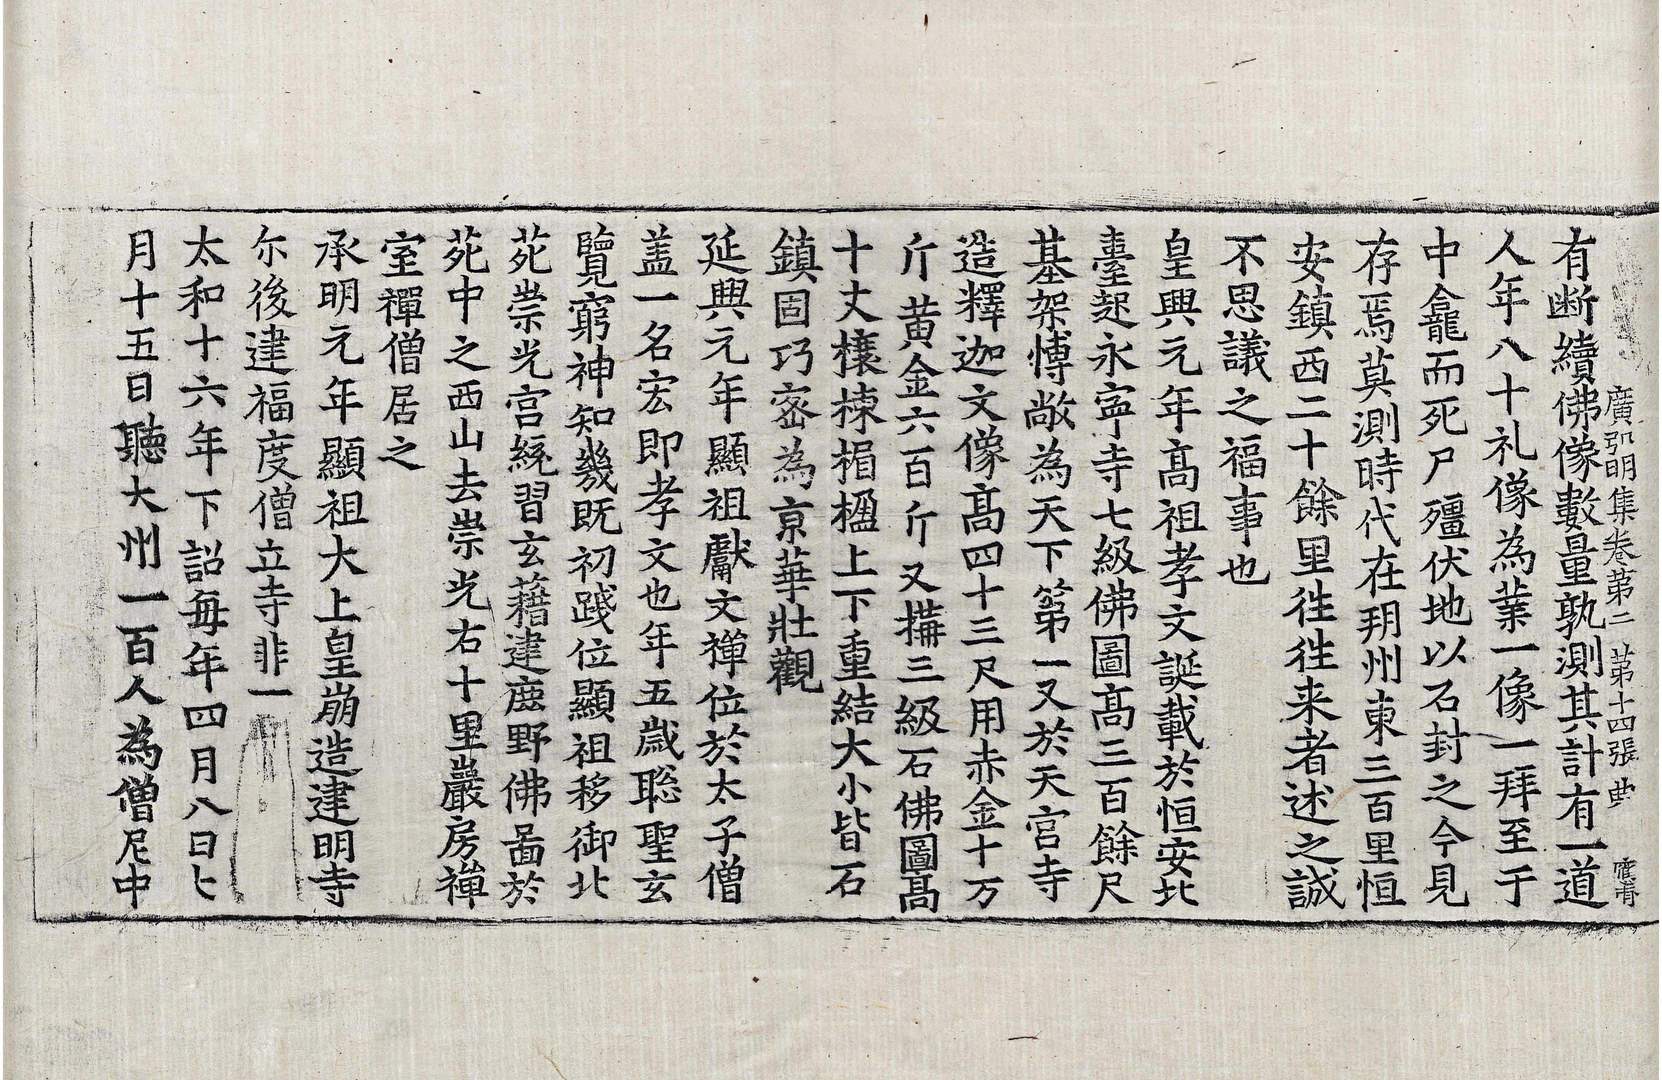 廣弘明集卷第二 第十四張 典
有断續佛像數量孰測其計有一道
人年八十礼像為業一像一拜至于
中龕而死尸殭伏地以石封之今見
存焉莫測時代在朔州東三百里恒
安鎮西二十餘里徃徃来者述之誠
不思議之福事也
皇興元年高祖孝文誕載於恒安北
臺起永寧寺七級佛圖高三百餘尺
基架愽敞為天下第一又於天宮寺
造釋迦文像高四十三尺用赤金十万
斤黄金六百斤又搆三級石佛圖高
十丈榱棟楣楹上下重結大小皆石
鎮固巧宻為京華壯觀
延興元年顯祖獻文禪位於太子僧
盖一名宏即孝文也年五歳聡聖玄
覽窮神知幾既初踐位顯祖移御北
苑崇光宫統習玄藉建鹿野佛啚於
苑中之西山去崇光右十里巖房禪
室禪僧居之
承明元年顯祖大上皇崩造建明寺
尓後建福度僧立寺非一
太和十六年下詔每年四月八日七
月十五日聽大州一百人為僧尼中